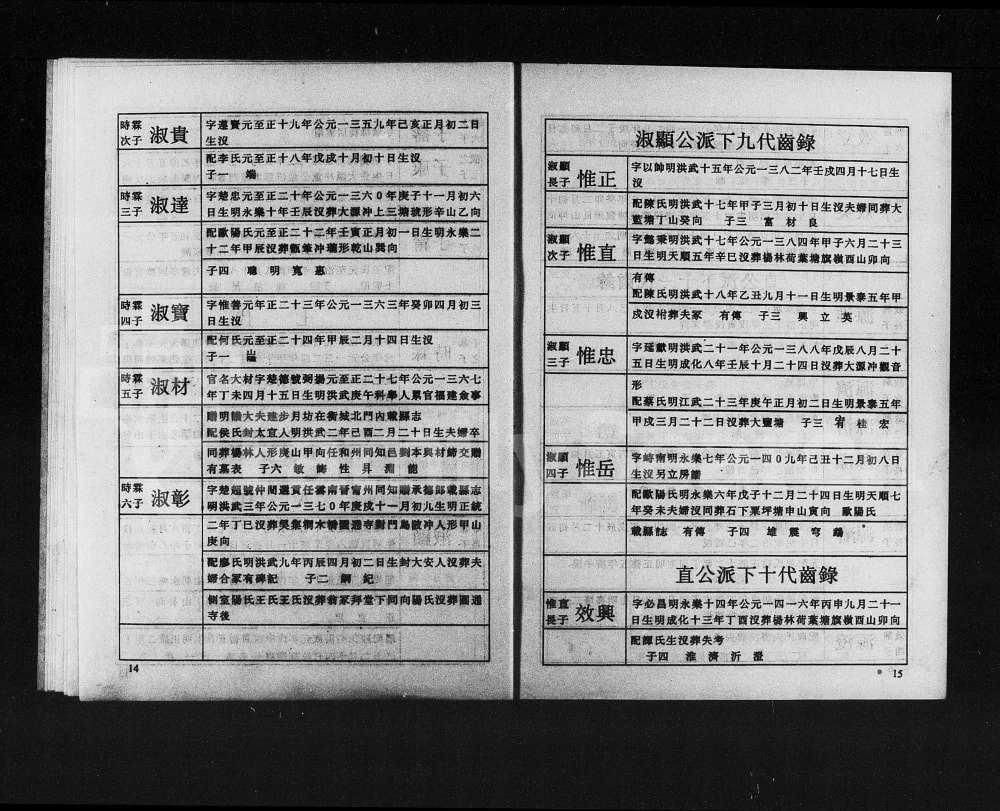 時霖次子 淑貴
字遵寶元至正十九年公元一三五九年己亥正月初二日
生沒
配李氏元至正十八年戊戌十月初十日生沒
子一 端
時霖三子 淑達
字楚忠元至正二十年公元一三六０年庚子十一月初六
日生明永樂十年壬辰沒葬大源冲上三塘虢形辛山乙向
配歐陽氏元至正二十二年壬寅正月初一日生明永樂二
十二年甲辰沒葬甑篳冲瓏形乾山巽向
子四 聰明寬惠
時霖四子 淑寶
字惟善元年正二十三年公元一三六三年癸卯四月初三
日生沒
配何氏元至正二十四年甲辰二月十四日生沒
子一
時霖五子 淑材
官名大材字楚德號弼揚元至正二十七年公元一三六七
年丁未四月十五日生明洪武庚午科舉人累官福建僉事
贈明大夫建步月坊在衡城北門內載縣志
配侯氏封太宜人明洪武二年己酉二月二十日生夫婦卒
同葬楊林人形庚山甲向任和州同知邑劉本與材締交贈
有墓表 子六 敏 性昇 能
時霖六子 淑彰
字楚超號仲聞選貢任雲南晉甯州同知贈承德郎載縣志
明洪武三年公元一三七０年庚戌十一月初九生明正統
二年丁巳沒葬吳集桐木橋圓通寺對門烏陂冲人形甲山
庚向
配廖氏明洪武九年丙辰四月初二日生封大安人沒葬夫
婦合冢有碑記 子二 綱紀
側室陽氏王氏王氏沒葬翁冢拜堂下同向陽氏沒葬圓通
寺後
14
淑顯公派下九代齒錄
淑顯長子 惟正
字以帥明洪武十五年公元一三八二年壬戌四月十七日生
沒
配陳氏明洪武十七年甲子三月初十日生沒夫婦同葬大
藍塘丁山癸向 子三 富材良
淑顯次子 惟直
字懿秉明洪武十七年公元一三八四年甲子六月二十三
日生明天順五年辛巳沒葬楊林荷葉塘旗嶺酉山卯向
有傳
配陳氏明洪武十八年乙丑九月十一日生明景泰五年甲
戌沒祔葬夫冢 有傳 子三 興立英
淑顯三子 惟忠
字延猷明洪武二十一年公元一三八八年戊辰八月二十
五日生明成化八年壬辰十月二十四日沒葬大源冲觀音
形
配蔡氏明江武二十三年庚午正月初二日生明景泰五年
甲戌三月二十二日沒葬大豐塘 子三 宥桂宏
淑顯四子 惟岳
字峙南明永樂七年公元一四０九年己丑十二月初八日
生沒另立房譜
配歐陽氏明永樂六年戊子十二月二十四日生明天順七
年癸未夫婦沒同葬石下栗坪塘申山寅向 歐陽氏
載縣誌 有傳 子四 雄震穹
直公派下十代齒錄
惟直長子 效興
字必昌明永樂十四年公元一四一六年丙申九月二十一
日生明成化十三年丁酉沒葬楊林荷葉塘旗嶺酉山卯向
配譚氏生沒葬失考
子四 淮濟沂澄
15